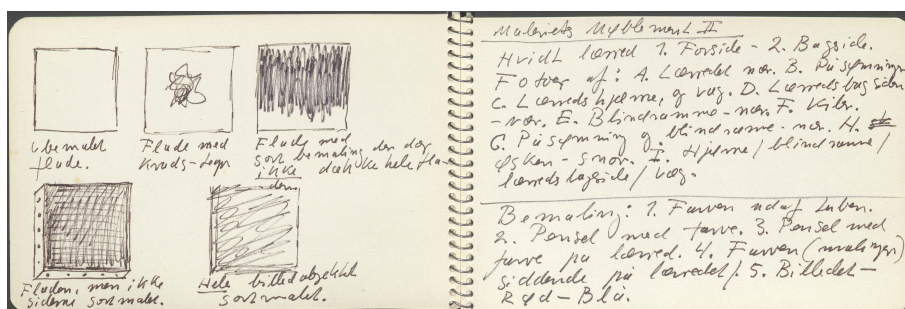 Ubemalet
flade.
Flade med
Krads-tegn
Flade med
sort bemaling der dog
ikke dækker hele fla-
dens
Fladen, men ikke
siderne sortmalet.
Hele billedobjektet
sortmalet.
Maleriets Møblement II
Hvidt lærred 1. Forside - 2. Bagside.
Fotoer af: A. Lærredet nær. B. Påspænding
C. Lærredshjørne, og væg. D. Lærredsbagsiden
- nær. E. Blindramme - nær. F. Kiler.
G. Påspænding og blindramme - nær. H.
Æsken - snor. I. Hjørne / blindramme /
lærredsbagside / væg.
Bemaling: 1. Farven ud af tuben.
2. Pensel med farve. 3. Pensel med
farve på lærred. 4. Farven (malingen)
siddende på lærredet. 5. Billedet -
Rød - Blå.